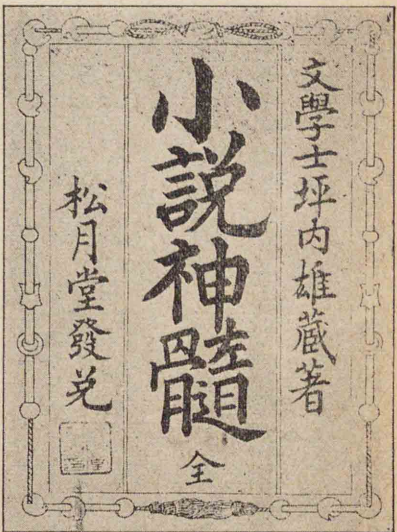 文學士坪内雄蔵著
小説神髓
全
松月堂發兌